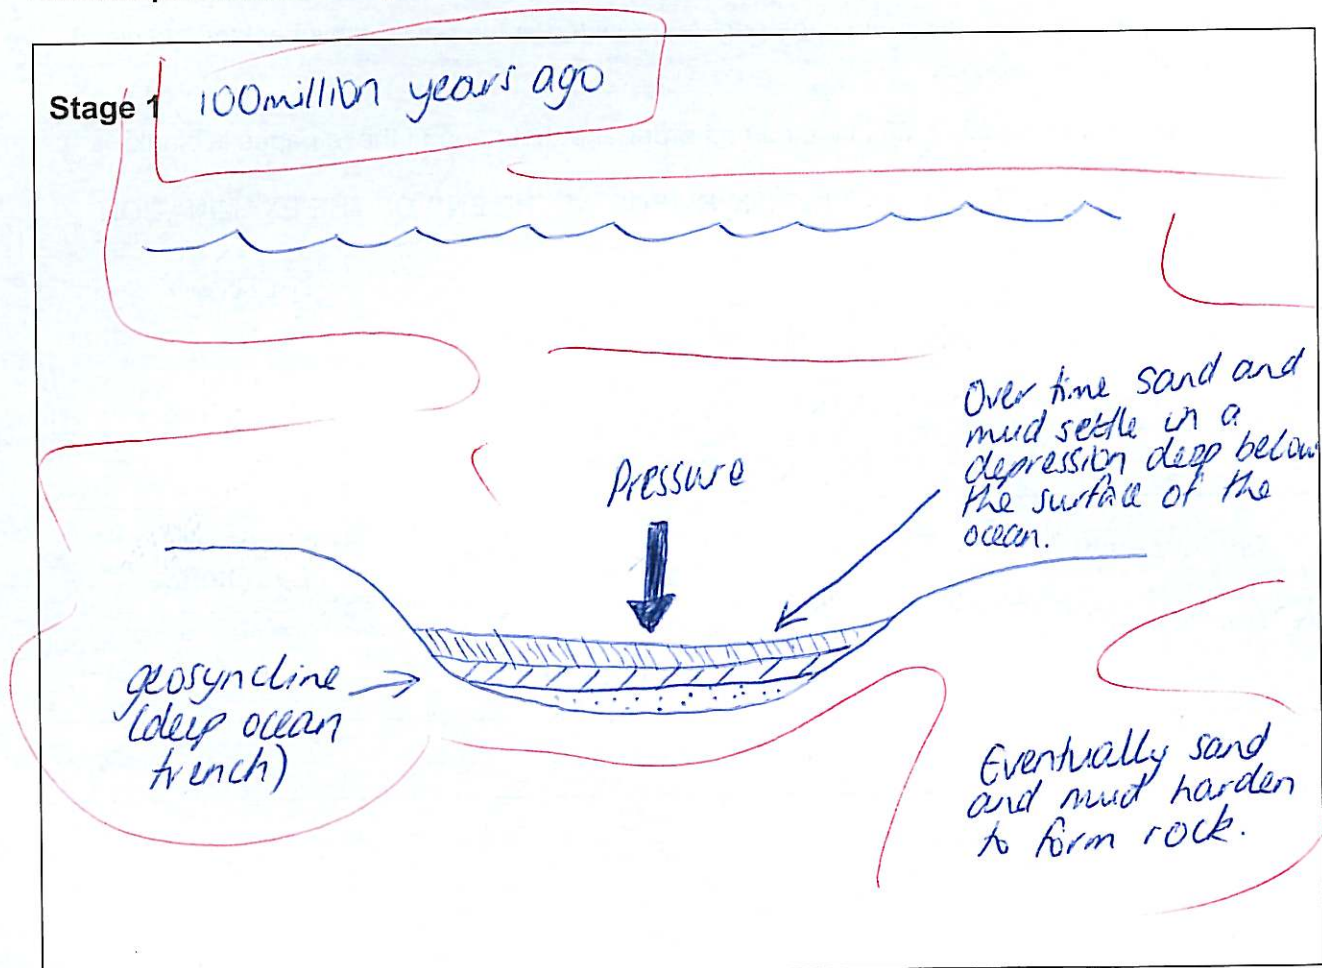 Stage 1 100million years ago
Pressure
Over time sand and
mud settle in a
depression deep below
the surface of the
ocean.
geosyncline
(deep ocean
trench)
Eventually sand
and mud harden
to form rock.